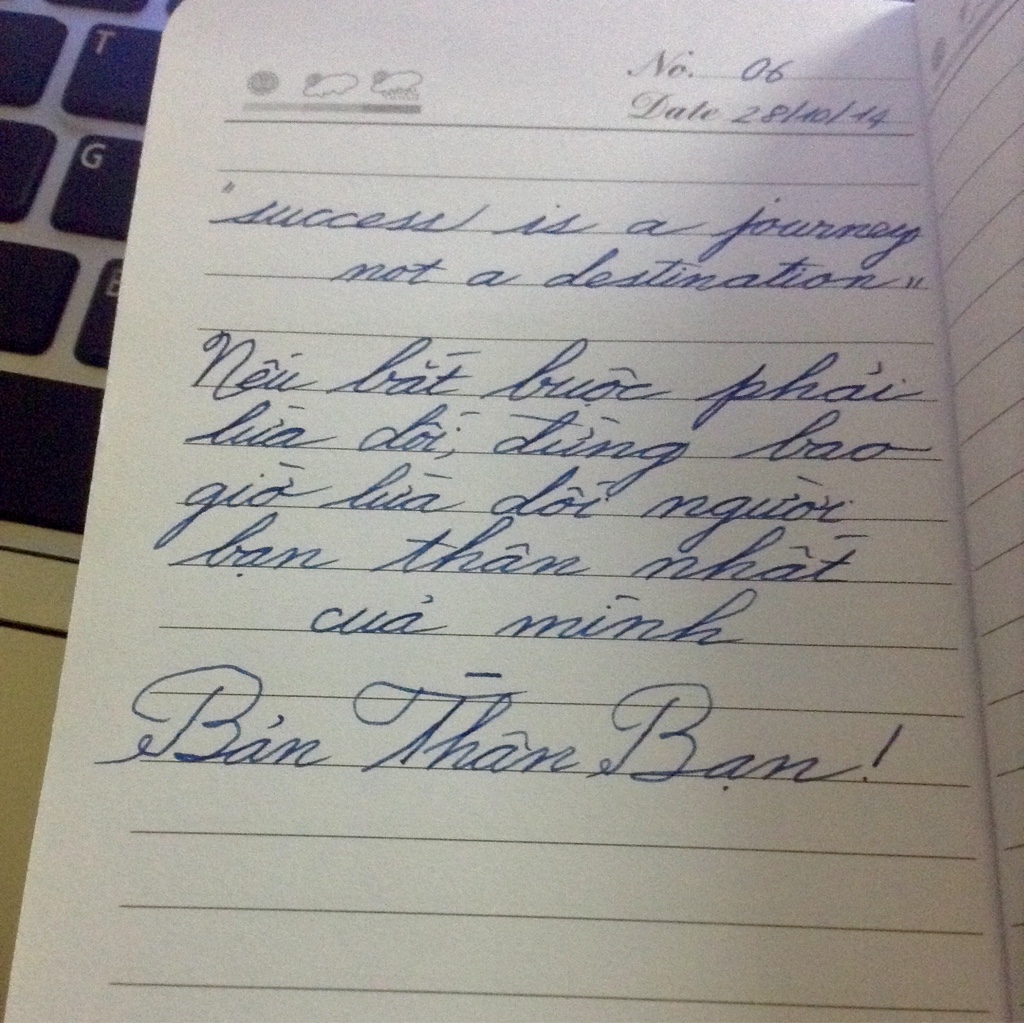 T
G
B
No. 06
Date 28/10/14
"success is a journey
not a destination"
Nếu bắt buộc phải
lừa dối, đừng bao
giờ lừa dối người
bạn thân nhất
của mình
–
Bản Thân Bạn!